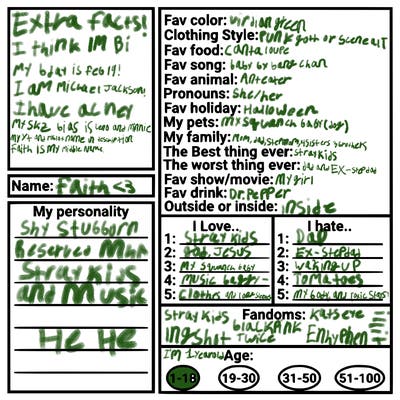 Extra facts!
I think IM Bi
My bday is feb 19!
I am Michael Jackson!
I have acney
My SKZ bias is Leeno and Minnie
My YT and main name in description
faith is my middle name
Name: Faith <3
My personality
Shy Stubborn
Reserved Mhm
Stray Kids
and Music
He He
Fav color: viridian green
Clothing Style: Punk goth or scene alt
Fav food: Cantaloupe
Fav song: baby by bang chan
Fav animal: Anteater
Pronouns: She/her
Fav holiday: Halloween
My pets: my squanch baby (dog)
My family: Mom, dad,
The Best thing ever: Stray Kids
The worst thing ever: dad and EX-Stepdad
Fav show/movie: My girl
Fav drink: Dr. Pepper
Outside or inside: inside
I Love..
1: Stray Kids
2: God, Jesus
3: My squanch baby
4: Music
5: Clothes and
I hate..
1: Dad
2: EX-Stepdad
3: waking up
4: Tomatoes
5: My body, and Toxic
Fandoms:
Stray Kids
Katseye
blackpink
Twice
Enhyphen
I'm
Age:
1-18 19-30 31-50 51-100